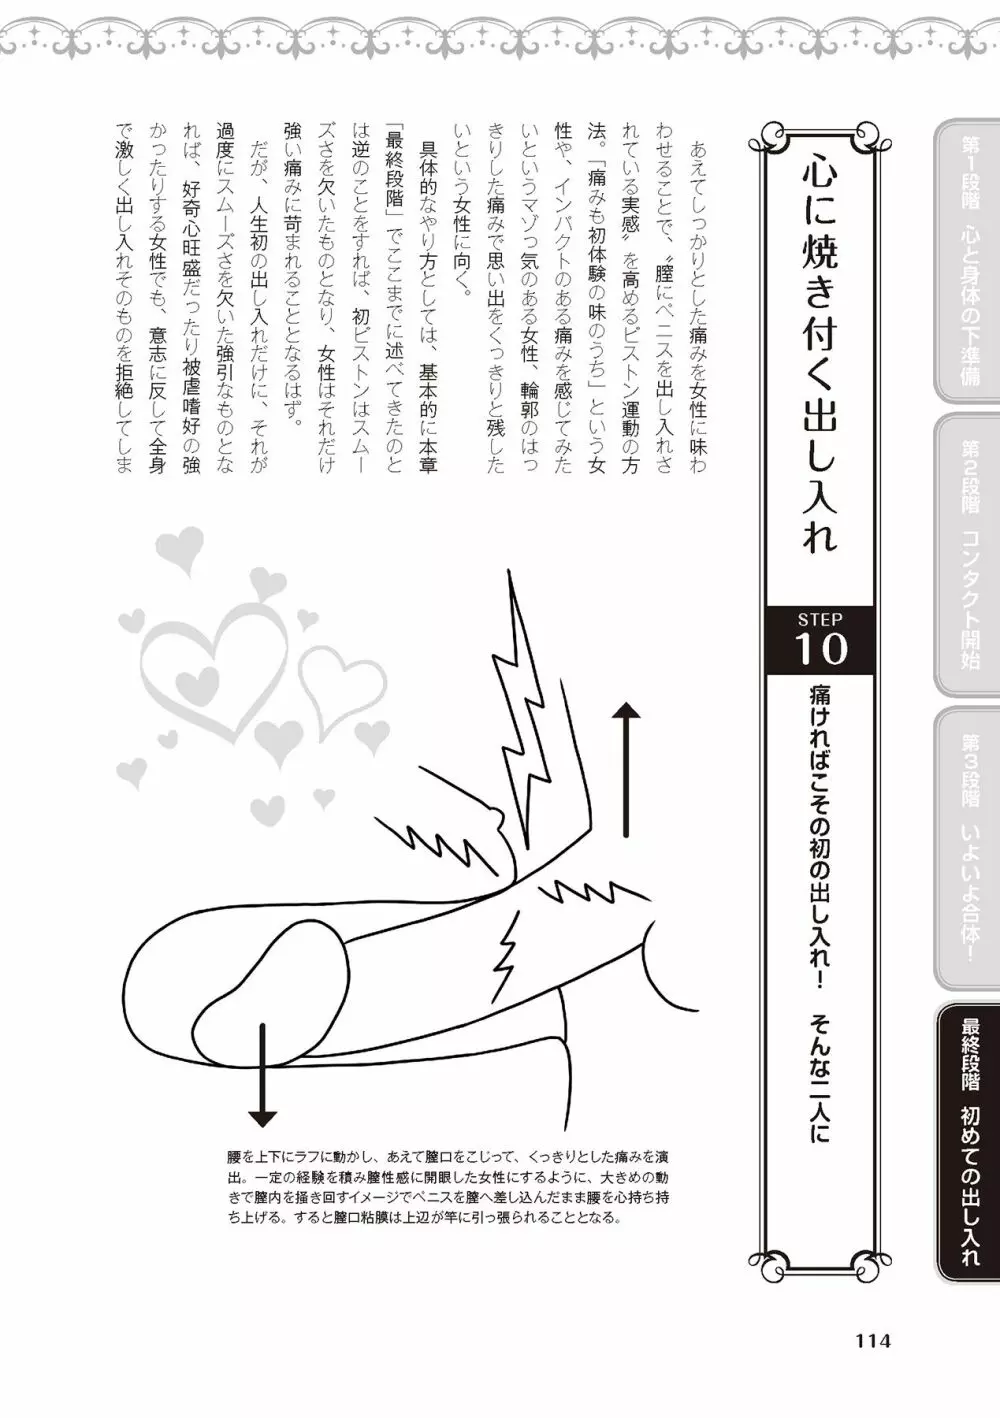 第1段階 心と身体の下準備
第2段階 コンタクト開始
第3段階 いよいよ合体!
最終段階 初めての出し入れ
心に焼き付く出し入れ
STEP
10
痛ければこその初の出し入れ! そんな二人に
あえてしっかりとした痛みを女性に味わ
わせることで、〝膣にペニスを出し入れさ
れている実感〟を高めるピストン運動の方
法。「痛みも初体験の味のうち」という女
性や、インパクトのある痛みを感じてみた
いというマゾっ気のある女性、輪郭のはっ
きりした痛みで思い出をくっきりと残した
いという女性に向く。
具体的なやり方としては、基本的に本章
「最終段階」でここまでに述べてきたのと
は逆のことをすれば、初ピストンはスムー
ズさを欠いたものとなり、女性はそれだけ
強い痛みに苛まれることとなるはず。
だが、人生初の出し入れだけに、それが
過度にスムーズさを欠いた強引なものとな
れば、好奇心旺盛だったり被虐嗜好の強
かったりする女性でも、意志に反して全身
で激しく出し入れそのものを拒絶してしま
腰を上下にラフに動かし、あえて膣口をこじって、くっきりとした痛みを演
出。一定の経験を積み膣性感に開眼した女性にするように、大きめの動
きで膣内を掻き回すイメージでペニスを膣へ差し込んだまま腰を心持ち持
ち上げる。すると膣口粘膜は上辺が竿に引っ張られることとなる。
114